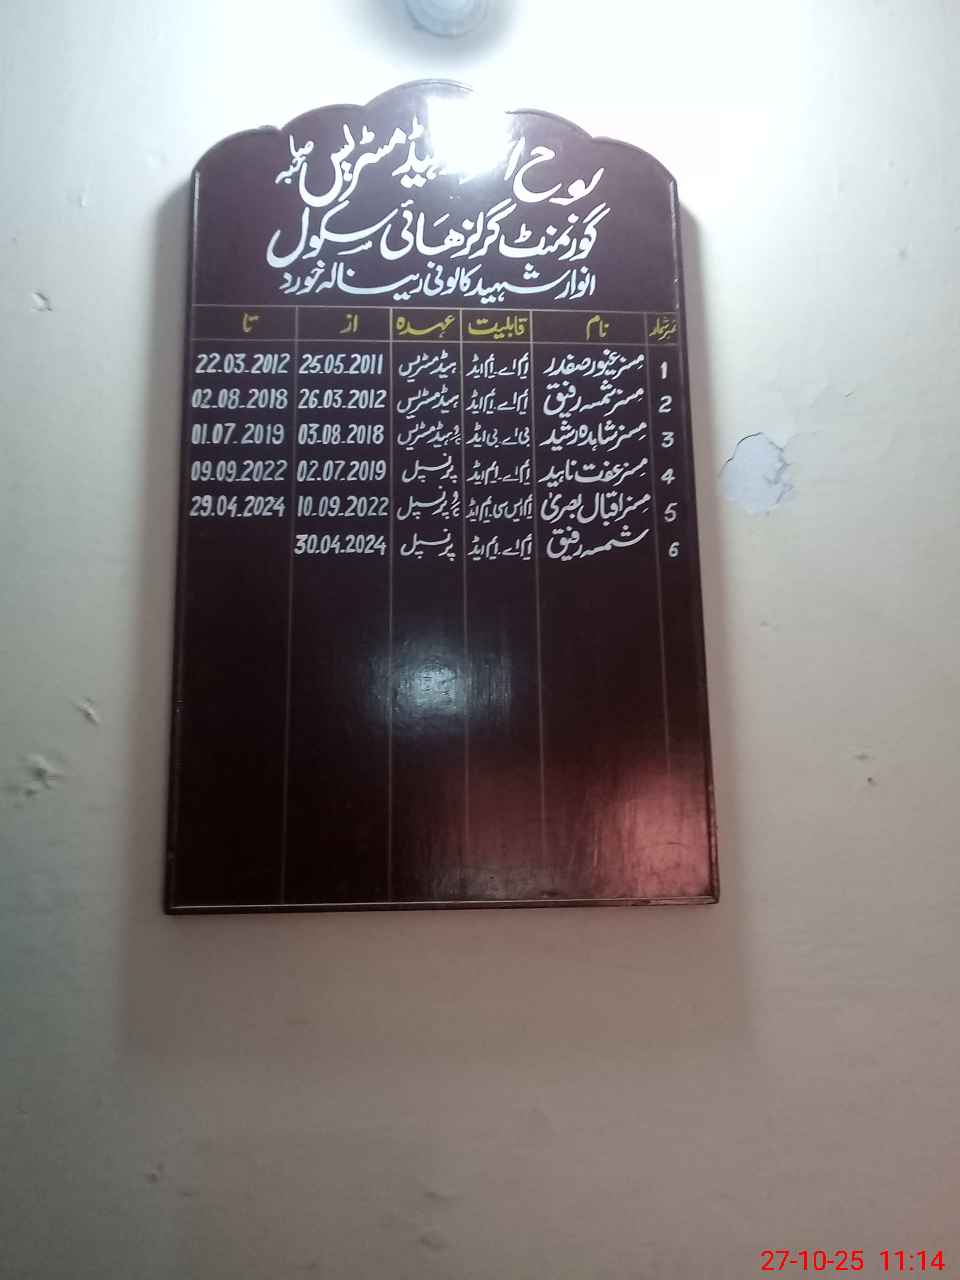 لوح ا ہیڈمسٹریس صاحبہ
گورنمنٹ گرلز ھائی سکول
انوار شہید کالونی رینالہ خورد
نمبر شمار نام قابلیت عہدہ از تا
1 مسز غیور صفدر ایم اے۔ایم ایڈ ہیڈمسٹریس 25.05.2011 22.03.2012
2 مسز شمسہ رفیق ایم اے۔ایم ایڈ ہیڈمسٹریس 26.03.2012 02.08.2018
3 مسز شاہدہ رشید بی اے۔بی ایڈ ہیڈمسٹریس 03.08.2018 01.07.2019
4 مسز عفت ناہید ایم اے۔ایم ایڈ پرنسپل 02.07.2019 09.09.2022
5 مسز اقبال بصریٰ ایم ایس سی۔ایم ایڈ پرنسپل 10.09.2022 29.04.2024
6 شمسہ رفیق ایم اے۔ایم ایڈ پرنسپل 30.04.2024
27-10-25 11:14